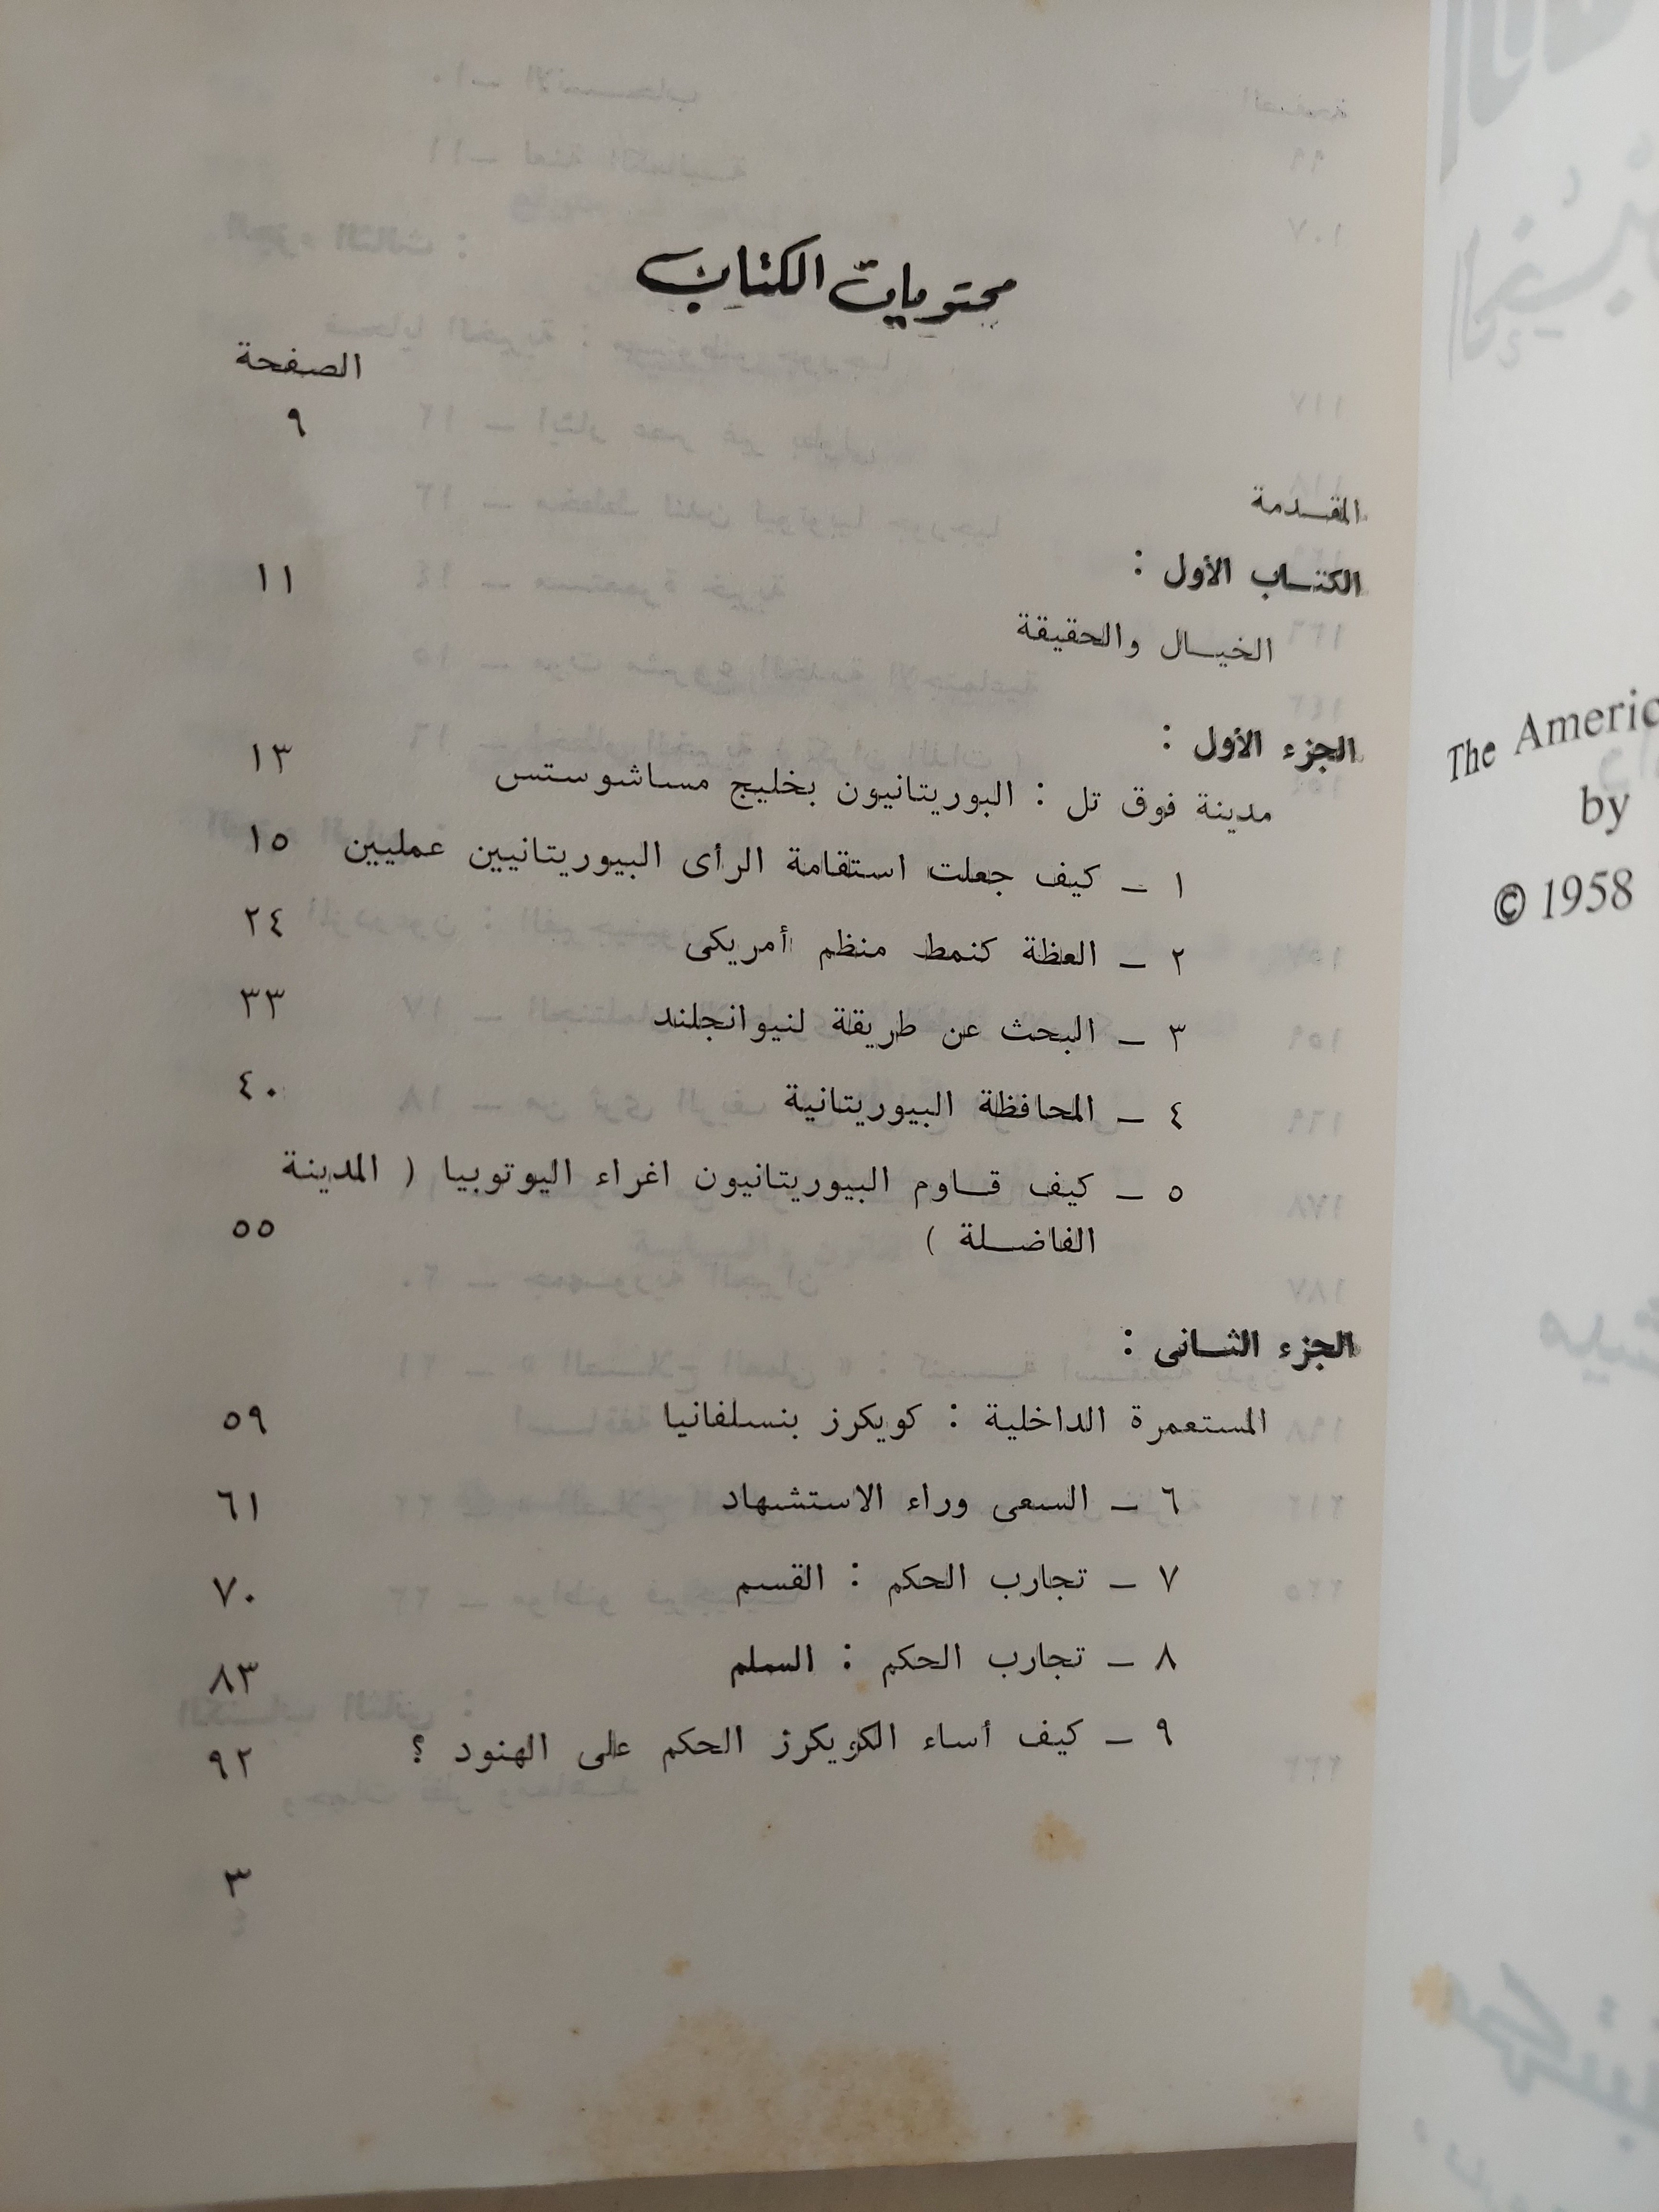 محتويات الكتاب
الصفحة
٩
المقـدمة
الكتـاب الأول : ١١
الخيـال والحقيقة
الجزء الأول :
مدينة فوق تل : البوريتانيون بخليج مساشوستس ١٣
١ ـ كيف جعلت استقامة الرأى البيوريتانيين عمليين ١٥
٢ ـ العظة كنمط منظم أمريكى ٢٤
٣ ـ البحث عن طريقة لنيوانجلند ٣٣
٤ ـ المحافظة البيوريتانية ٤٠
٥ ـ كيف قـاوم البيوريتانيون اغراء اليوتوبيا ( المدينة
الفاضـلة ) ٥٥
الجزء الثـانى :
المستعمرة الداخلية : كويكرز بنسلفانيا ٥٩
٦ ـ السعى وراء الاستشهاد ٦١
٧ ـ تجارب الحكم : القسم ٧٠
٨ ـ تجارب الحكم : السلم ٨٣
٩ ـ كيف أساء الكويكرز الحكم على الهنود ؟ ٩٢
٣
The Americ
by
© 1958